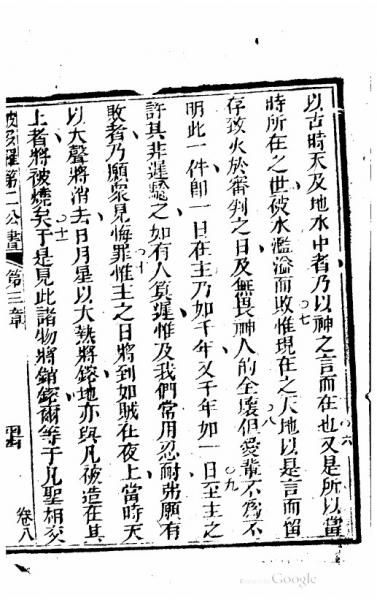 六
以古時天及地水中者乃以神之言而在也又是所以當
七
時所在之世被水濫溢而敗惟現在之天地以是言而畱
八
存致火於審判之日及無畏神人的全壞但愛輩不爲不
九
明此一件卽一日在主乃如千年又千年如一日至主之
許其非遲緩之如有人筭遲惟及我們常用忍耐弗願有
十
敗者乃願衆見悔罪惟主之日將到如賊在夜上當時天
以大聲將消去日月星以大熱將鎔地亦與凡被造在其
十一
上者將被燒矣于是見此諸物將銷鎔爾等于凡聖相交
彼多羅第二公書 第三章 卷八
Google